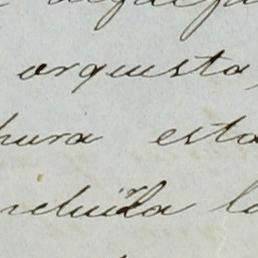 orquesta,
hura esta
ncluida la